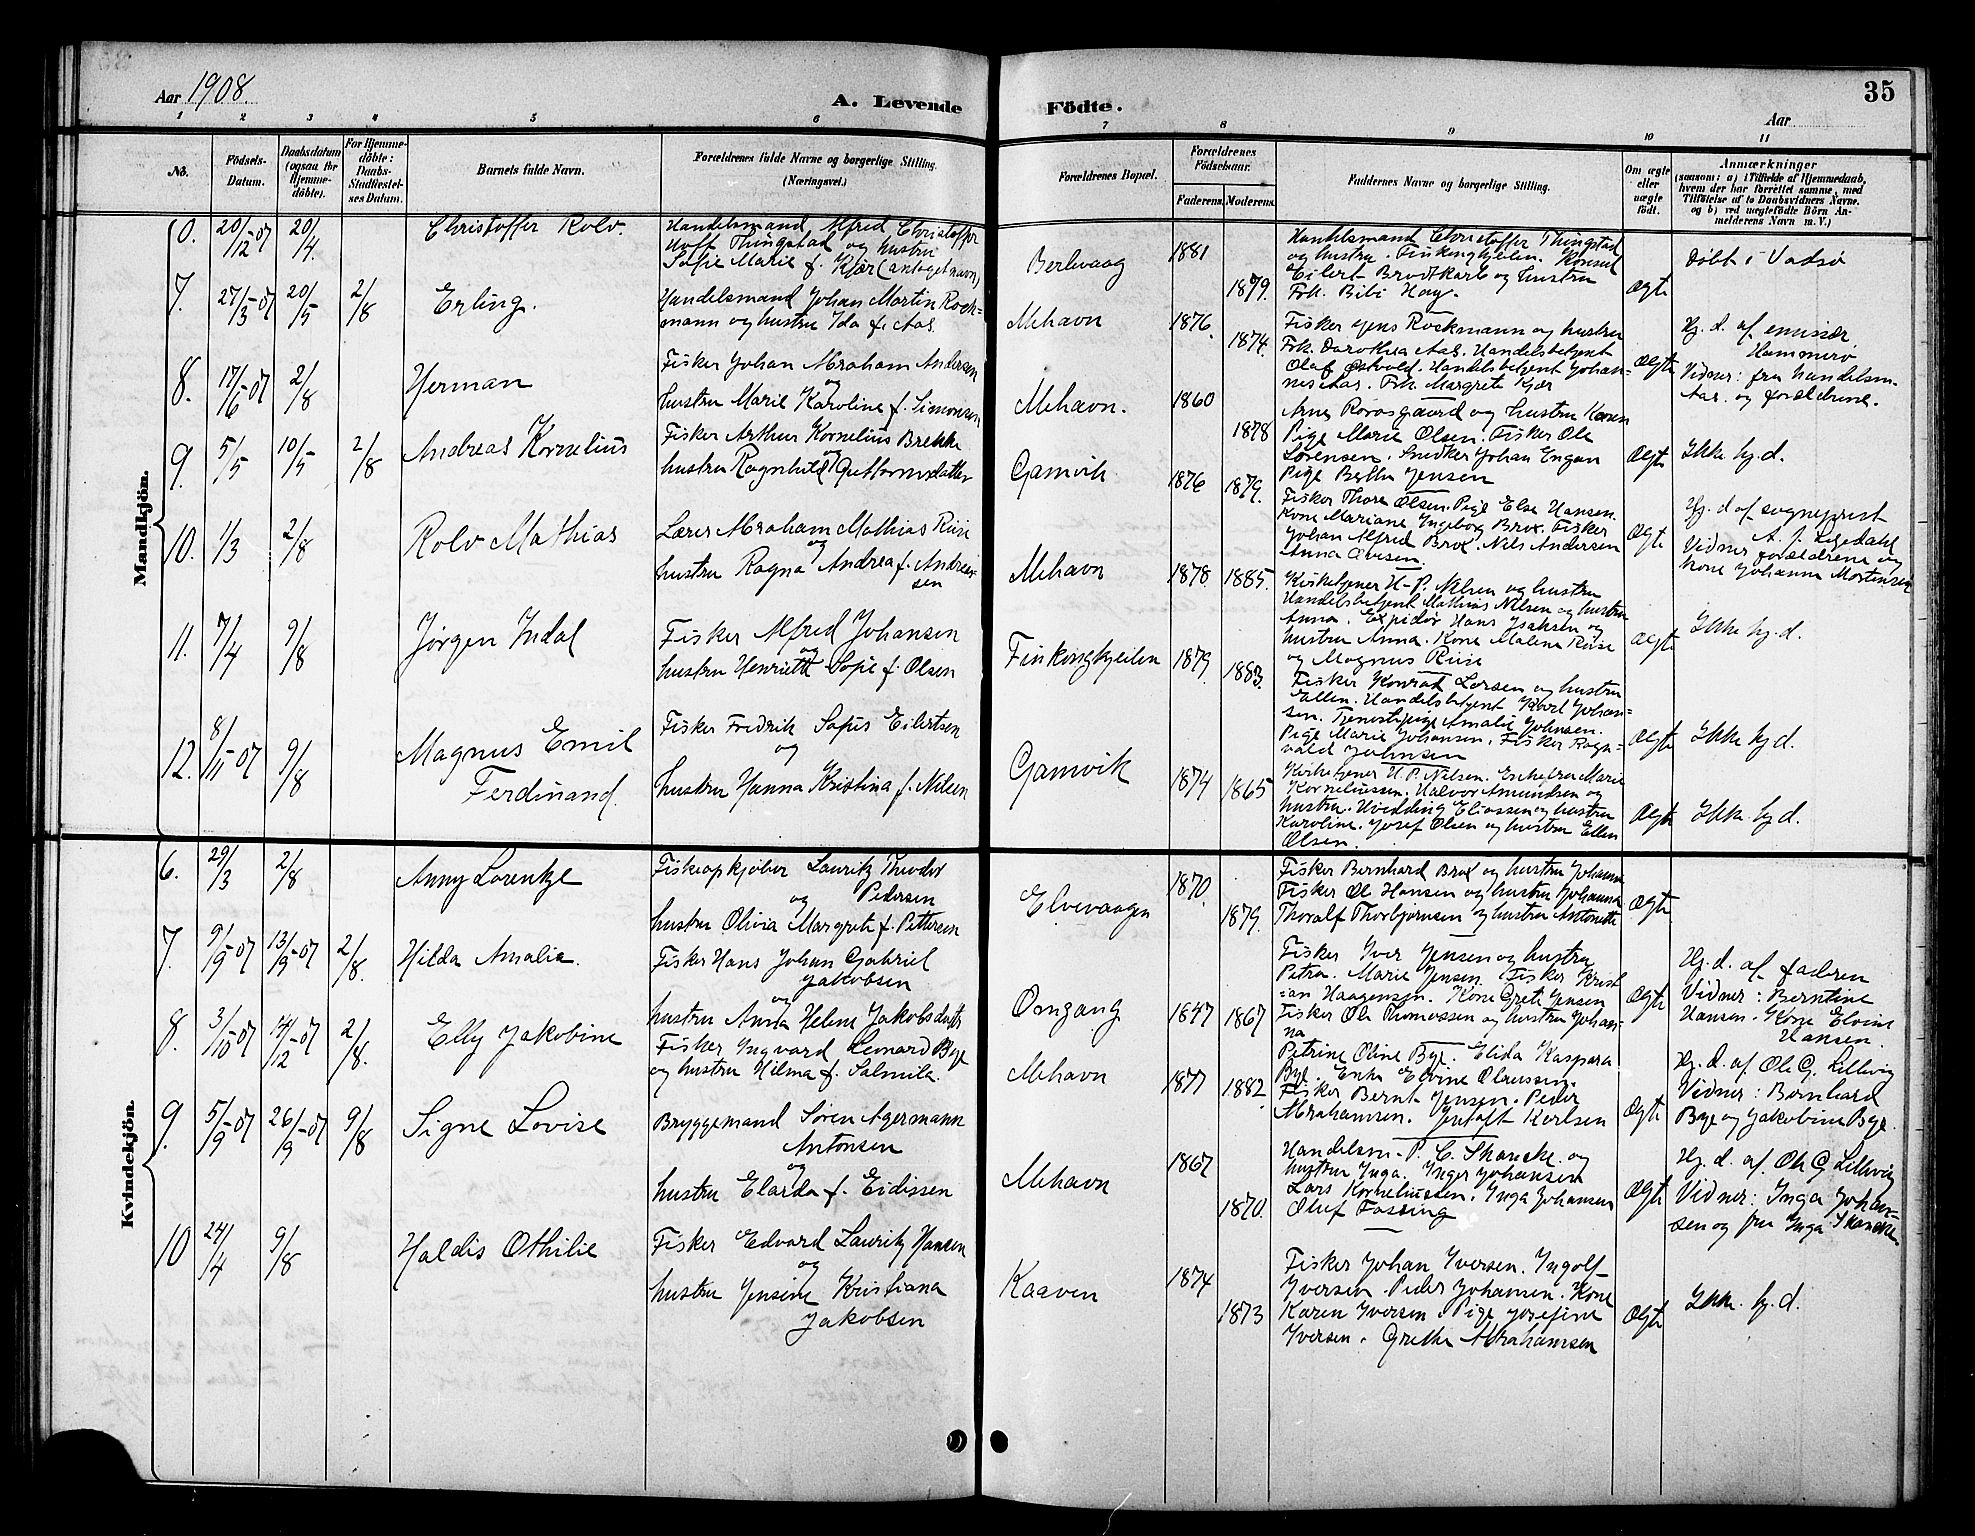 Aar 1908.
A. Levende
Födte.
35
Aar
1 2 3 4 5 6 7 8 9 10 11
No.
Födsels-Datum.
Daabsdatum (ogsaa for Hjemme-döbte).
For Hjemme-döbte: Daabs-Stadfæstel-ses Datum.
Barnets fulde Navn.
Forældrenes fulde Navne og borgerlige Stilling.
(Næringsvei.)
Forældrenes Bopæl.
Forældrenes Födselsaar.
Faderens. Moderens.
Faddernes Navne og borgerlige Stilling.
Om ægte eller uægte födt.
Anmærkninger
(saasom: a) i Tilfælde af Hjemmedaab, hvem der har forrettet samme, med Tilföielse af to Daabsvidners Navne, og b) ved uægtefödte Börn An-melderens Navn m. V.)
Mandkjön.
0. 20/12-07 20/4. Christoffer Rolv.
Handelsmand Alfred Christoffer
Hoft Thingstad og hustru
Sofie Marie f. Kjær (antaget navn)
Berlevaag 1881 1879.
Handelsmand Christoffer Thingstad
og hustru. Finkongkjeilen. Konsul
Eilert Brodtkorb og hustru
Frk. Bibi Hay.
Ægte
Døbt i Vadsø
7. 27/3-07 20/5 2/8 Erling.
Handelsmand Johan Martin Rock=
mann og hustru Ida f. Aas.
Mehavn 1876. 1874.
Fisker Jens Rockmann og hustru
Frk. Dorothea Aas. Handelsbetjent
Olaf Østvold. Handelsbetjent Johan-
nes Aas. Frk. Margrete Kjær
Ægte
Hj. d. af emissær
Hammerø
Vidner: fru handelsm.
Aas. og forældrene.
8. 17/6-07 2/8 Herman
Fisker Johan Abraham Andersen
og
hustru Marie Karoline f. Simonsen
Mehavn. 1860 1878
Arne Rovosgaard og hustru Karen
Pige Marie Olsen. Fisker Ole
Sørensen. Snedker Johan Engan
Pige Bertha Jensen
Ægte
Ikke hj. d.
9. 5/5 10/5 2/8 Andreas Kornelius
Fisker Arthur Kornelius Brekke
og
hustru Ragnhild Guttormsdatter
Gamvik 1876 1879.
Fisker Thore Olsen. Pige Else Hansen.
Kone Mariane Ingeborg Brox. Fisker
Johan Alfred Brox. Nils Andersen
Anna
Ægte
Hj. d af sogneprest
A. J.
Vidner forældrene og
kone Johanna Mortensen
10. 1/3 2/8 Rolv Mathias
Lærer Abraham Mathias Riise
og
hustru Ragna Andrea f. Andrea-
sen
Mehavn 1878. 1885.
Kirketjener H. P. Nilsen og hustru
Handelsbetjent Mathias Nilsen og hustru
Anna. Expiditør Hans Isaksen og
hustru Anna. Kone Malene Riise
og Magnus Riise
Ægte
Ikke hj. d.
11. 7/4 9/8 Jørgen Indal
Fisker Alfred Johansen
og
hustru Henriette Sofie f. Olsen
Finkongkjeilen 1879. 1883.
Fisker Konrad Larsen og hustru
Ellen. Handelsbetjent Karl Johan=
sen. Tjenestepige Amalie Johnsen.
Pige Marie Johansen. Fisker Ragn=
vald Johnsen
Ægte
Ikke hj d.
12. 8/11-07 9/8 Magnus Emil
Ferdinand.
Fisker Fredrik Sofus Eilertsen
og
hustru Hanna Kristina f. Nilsen
Gamvik 1874 1865
Kirketjener H. P. Nilsen. Enkefru Marie
Korneliussen. Halvor Amundsen og
hustru. Hvidding Eliassen og hustru
Karoline. Josef Olsen og hustru Ellen
Olsen.
Ægte
Ikke hj d.
Kvindekjön.
6. 29/3 2/8 Anny Lorentze
Fiskeopkjøber Lauritz Theodor
Pedersen
og
hustru Olivia Margrete f. Pettersen
Elvevaagen 1870. 1879.
Fisker Bernhard Brox og hustru Johanna
Fisker Ole Hansen og hustru Johanna
Thoralf Thorbjørnsen og hustru Antonette
Ægte
7. 9/9-07 13/9-07 2/8 Hilda Amalie.
Fisker Hans Johan Gabriel
Jakobsen
og
hustru Anna Helene Jakobsdatter
Omgang 1847 1867
Fisker Iver Jensen og hustru
Petra. Marie Jensen. Fisker Krist
=ian Haagensen. Kone Grete Jensen
Fisker Ole Thomassen og hustru Johan-
na
Ægte
Hj. d. af faderen
Vidner: Berntine
Hansen. Kone Elvine
Hansen.
8. 3/10-07 14/12-07 2/8. Elly Jakobine
Fisker Ingvard Leonard Bye
og hustru Hilma f. Salmila.
Mehavn 1877 1882
Petrine Oline Bye. Elida Kaspara
Bye. Enke Elvine Olaussen.
Fisker Bernt Jensen. Peder
Abrahamsen. Jentoft Karlsen
Ægte
Hj. d. af Ole G. Lillevig
Vidner: Bernhard
Bye og Jakobine Bye.
9. 5/9-07 26/9-07 9/8 Signe Lovise
Bryggemand Søren Agermann
Antonsen
og
hustru Elarda f. Eidissen
Mehavn 1867 1870.
Handelsm. P. C. Skancke og
hustru Inga. Inger Johansen
Lars Korneliussen. Inga Johansen
Oluf Fossing
Ægte
Hj. d. af Ole G Lillevig
Vidner: Inga Johan-
sen og fru Inga Skancke.
10 24/4 9/8 Haldis Othilie
Fisker Edvard Lauritz Hansen
og
hustru Jensine Kristiana
Jakobsen
Kaaven 1874 1873
Fisker Johan Iversen. Ingolf
Iversen. Peder Johansen. Kone
Karen Iversen. Pige Josefine
Iversen. Grethe Abrahamsen
Ægte
Ikke. hj. d.